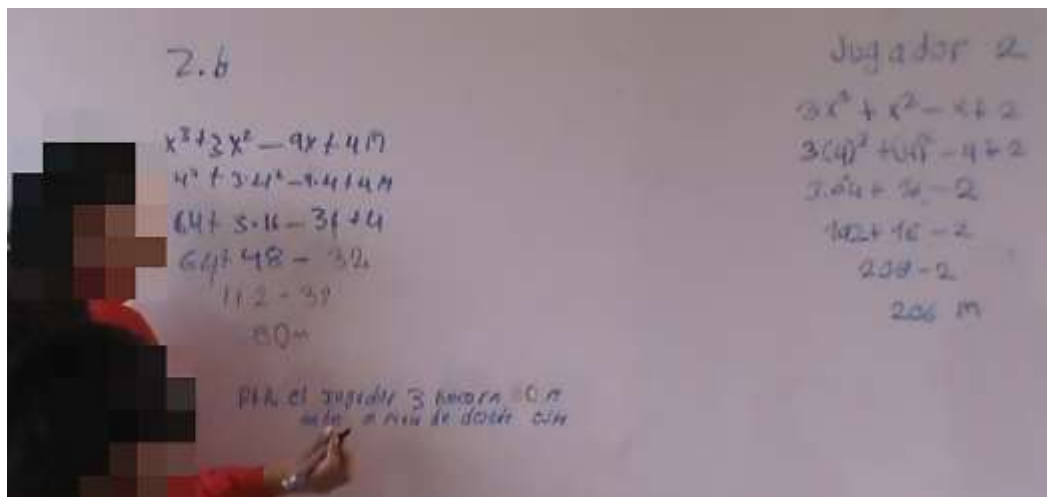 2.6
x³ + 3x² - 9x + 4 m
4³ + 3·4² - 9·4 + 4 m
64 + 3·16 - 36 + 4
64 + 48 - 32
112 - 32
80m
el jugador 3 80 m
de donde
Jugador 2
3x³ + x² - x + 2
3(4)³ + (4)² - 4 + 2
3.64 + 16 - 2
192 + 16 - 2
208 - 2
206 m